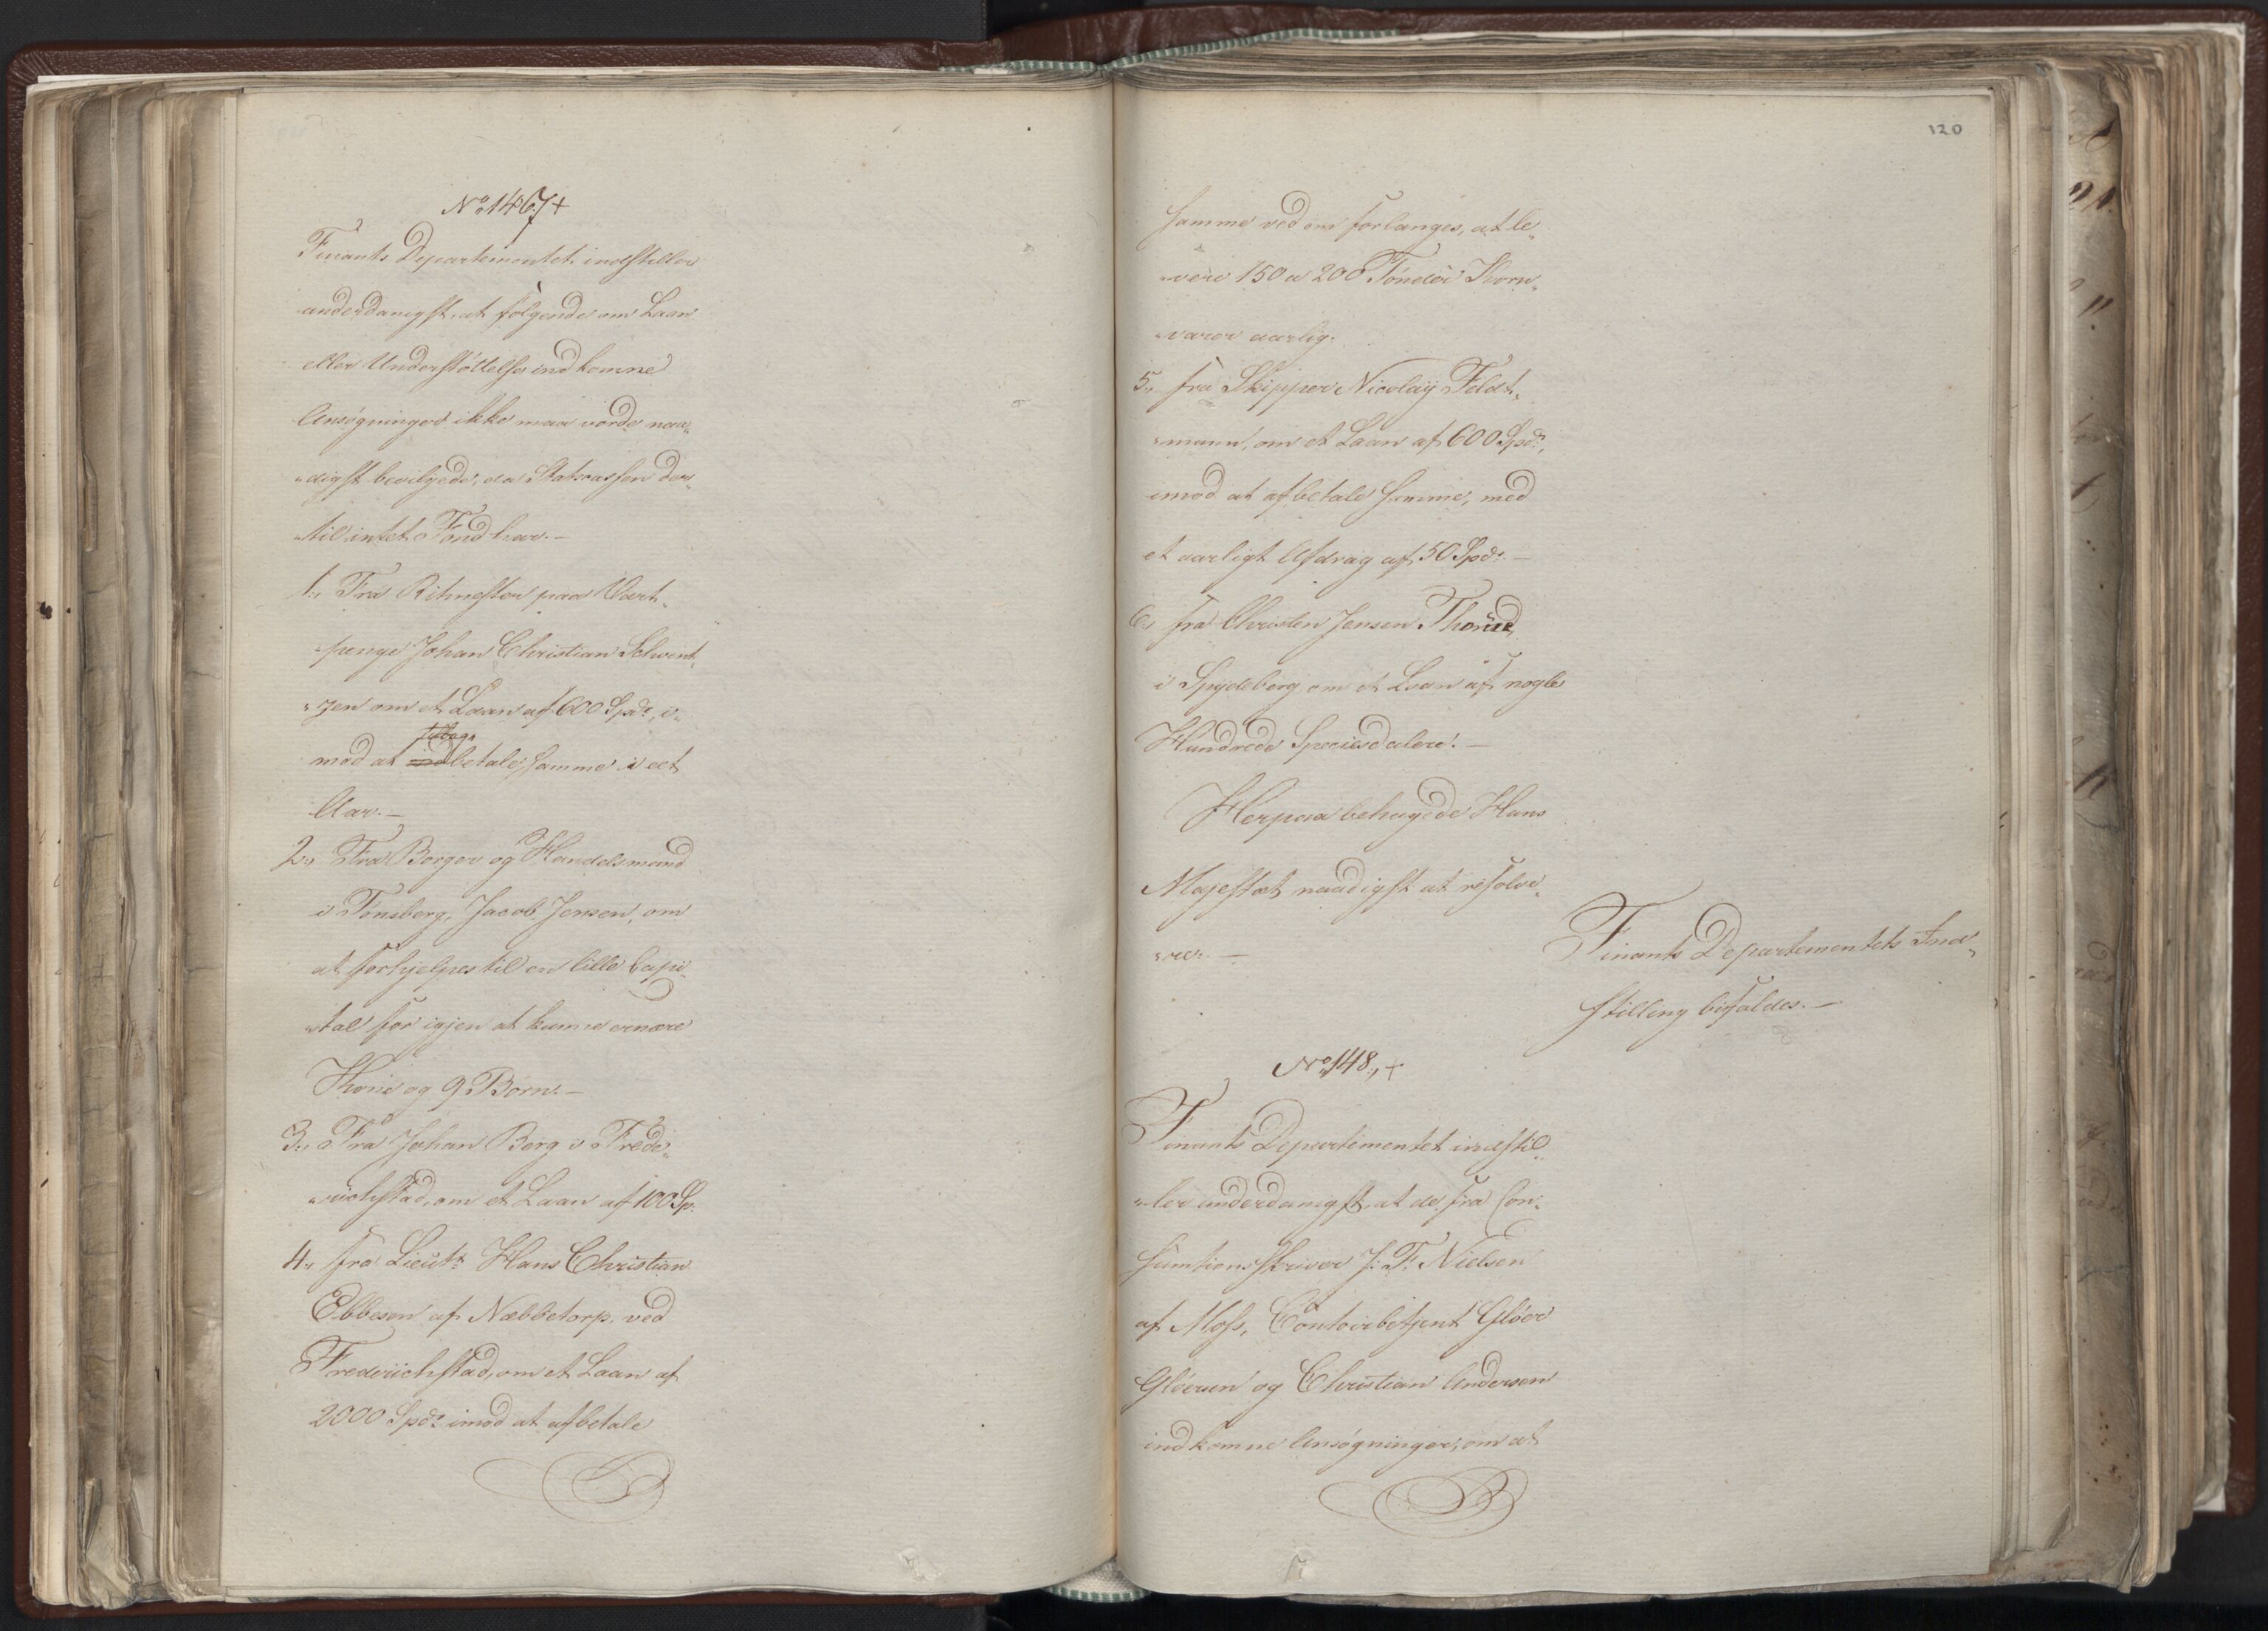 No 147 +
Finants Departementet indstiller
underdanigst, at følgende om Laan
eller Understøttelse indkomne
Ansøgninger ikke maa vorde naa„
„digst bevilgede, da Statscassen der„
„til intet Fond har. —
1., Fra Ritmester paa Vart„
„penge Johan Christian Schwent„
„zen om et Laan af 600 Spd:, i„
tilbage
mod at ind betale samme i eet
Aar. —
2., Fra Borger og Handelsmand
i Tønsberg, Jacob Jensen, om
at forhjelpes til en lille Capi„
„tal for igjen at kunne ernære
Kone og 9 Børn. —
3., Fra Johan Berg i Frede„
„richstad, om et Laan af 100 Sp.
4., fra Lieut: Hans Christian
Ebbesen af Næbbetorp ved
Frederichstad, om et Laan af
2000 Spd: imod at afbetale
120
samme ved om forlanges, at le„
„vere 150 a 200 Tønder Korn„
„varer aarlig.
5., fra Skipper Nicolay Feldt„
„mann, om et Laan af 600 Spd:,
imod at afbetale samme, med
et aarligt Afdrag af 50 Spd: —
6., fra Christen Jensen
i Spydeberg om et Laan af nogle
Hundrede Speciesdalere. —
Herpaa behagede Hans
Majestæt naadigst at resolve„
„rer. —
Finants Departementets Ind„
stilling bifaldes. —
No 148., +
Finants Departementet indstil„
„ler underdanigst, at de fra Con„
sumtionsskriver J: F: Nielsen
af Moss, Contoirbetjent Gløer
Gløersen og Christian Andersen
indkomne Ansøgninger, om at